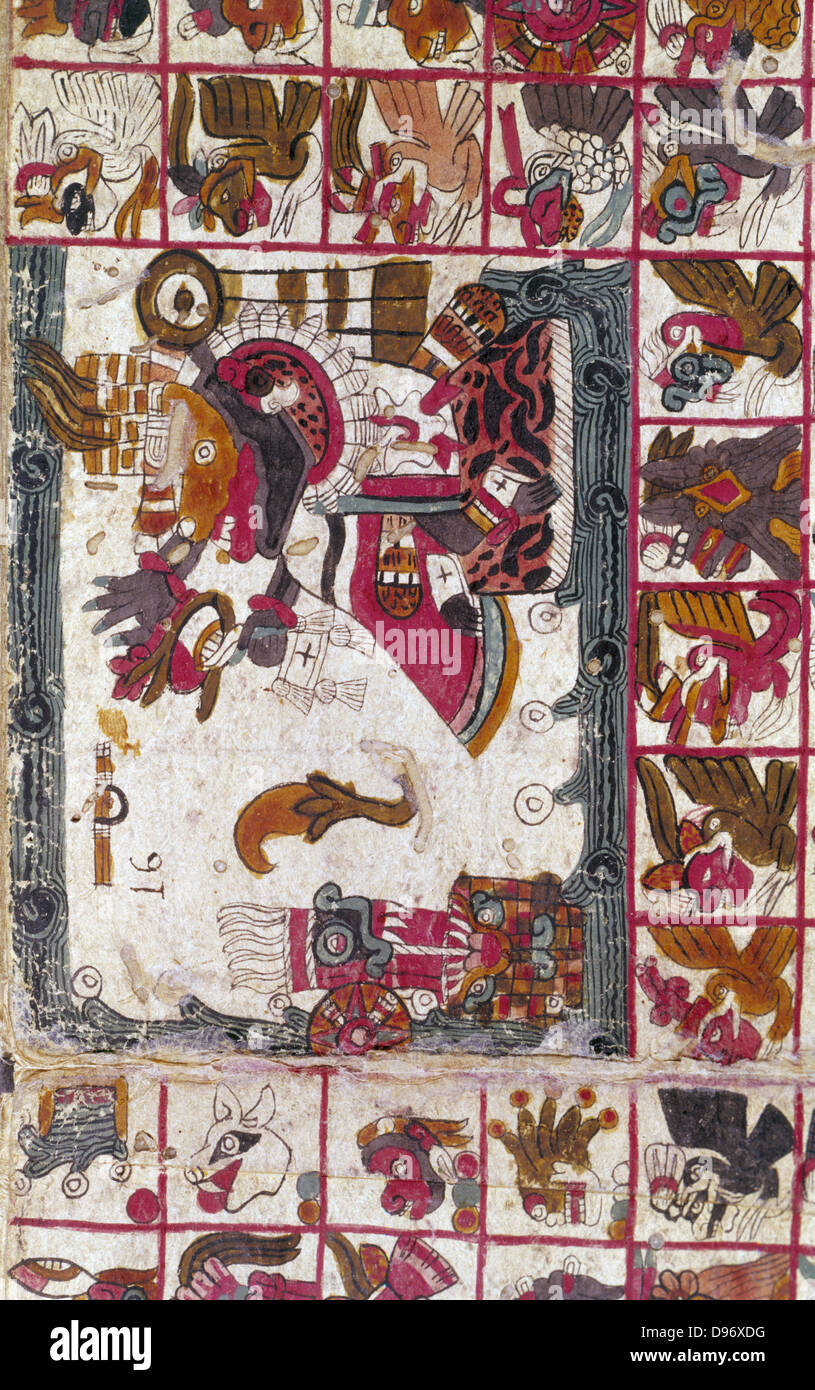 16
alamy
Image ID: D96XDG
www.alamy.com